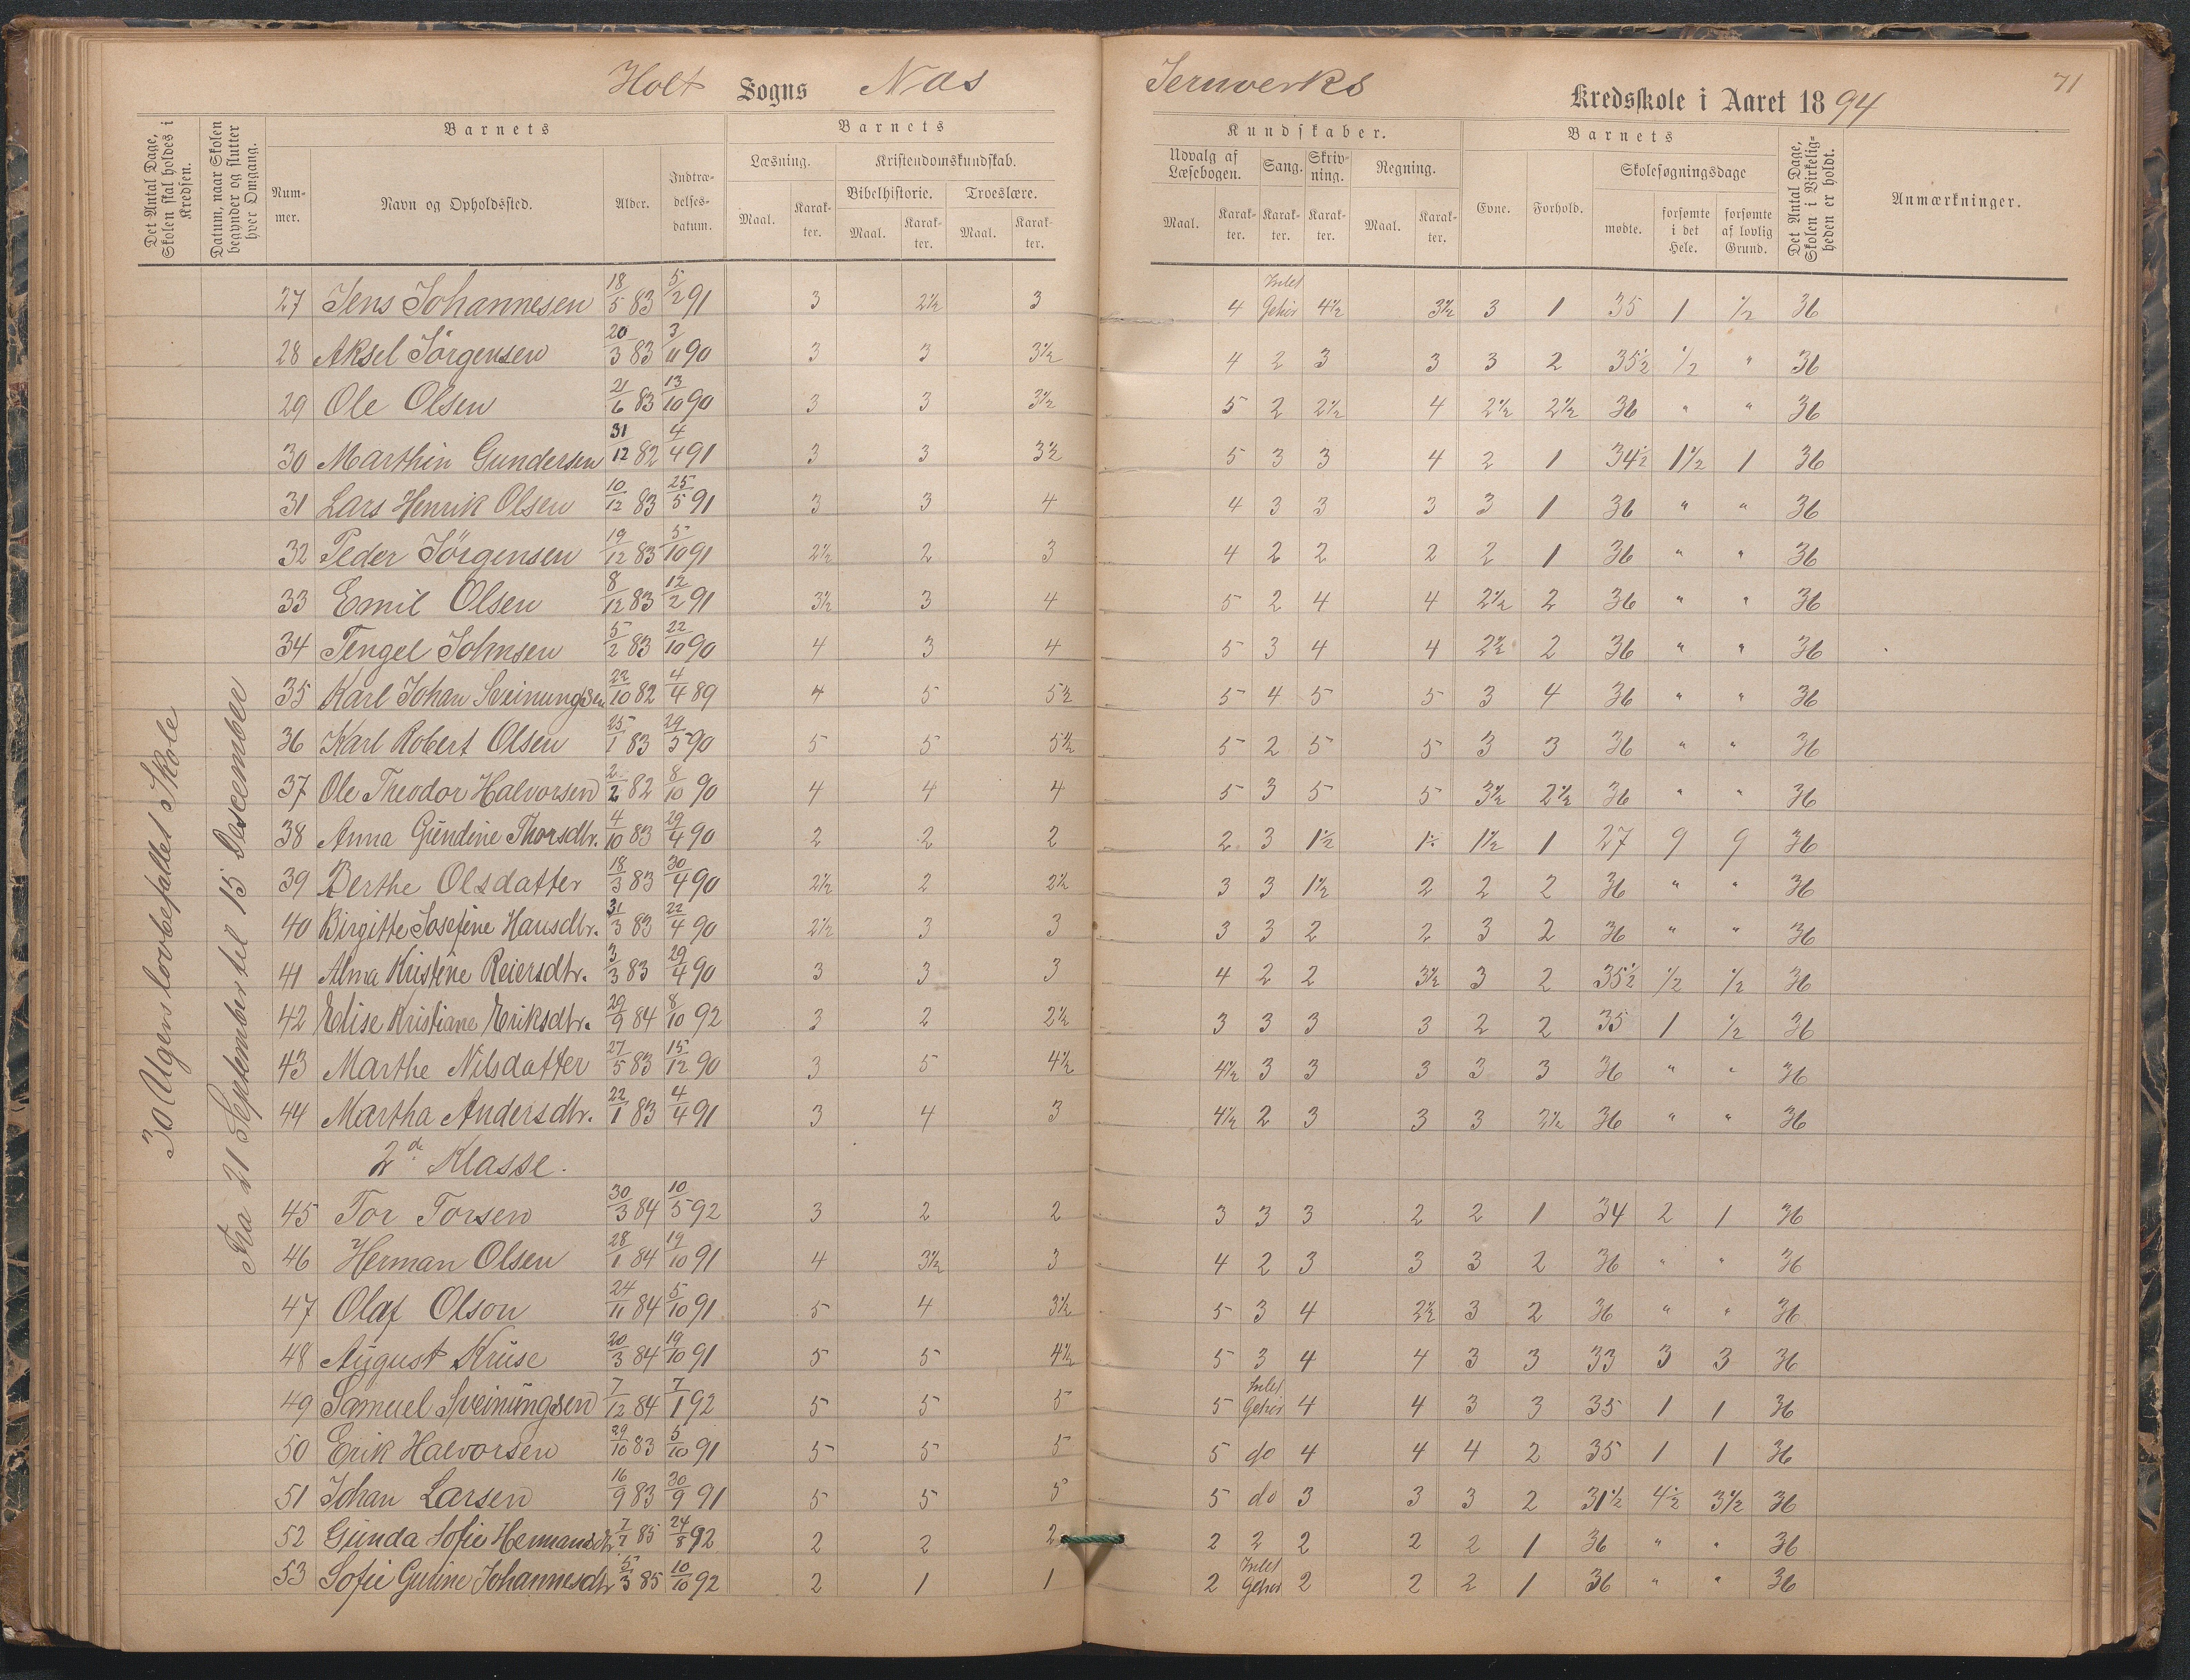 Holt Sogns Næs Jernverks Kredsskole i Aaret 1894
71
Det Antal Dage, Skolen skal holdes i Kredsen.
Datum, naar Skolen begynder og slutter hver Omgang.
Barnets
Nummer.
Navn og Opholdssted.
Alder.
Indtrædelsesdatum.
Barnets
Læsning.
Maal.
Karakter.
Kristendomskundskab.
Bibelhistorie.
Maal.
Karakter.
Troeslære.
Maal.
Karakter.
Kundskaber.
Udvalg af Læsebogen.
Maal.
Karakter.
Sang.
Karakter.
Skrivning.
Karakter.
Regning.
Maal.
Karakter.
Barnets
Evne.
Forhold.
Skolesøgningsdage
mødte.
forsømte i det Hele.
forsømte af lovlig Grund.
Det Antal Dage, Skolen i Virkeligheden er holdt.
Anmærkninger.
30 Ugers lovbefallet Skole
Fra 21 September til 15 Descember
27 Jens Johannesen 18/5 83 5/2 91 3 2½ 3 4 Intet Gehör 4½ 3½ 3 1 35 1 ½ 36
28 Aksel Jörgensen 20/3 83 3/11 90 3 3 3½ 4 2 3 3 3 2 35½ ½ " 36
29 Ole Olsen 21/6 83 13/10 90 3 3 3½ 5 2 2½ 4 2½ 2½ 36 " " 36
30 Marthin Gundersen 31/12 82 4/4 91 3 3 3½ 5 3 3 4 2 1 34½ 1½ 1 36
31 Lars Henrik Olsen 10/12 83 25/5 91 3 3 4 4 3 3 3 3 1 36 " " 36
32 Peder Jörgensen 19/12 83 5/10 91 2½ 2 3 4 2 2 2 2 1 36 " " 36
33 Emil Olsen 8/12 83 12/2 91 3½ 3 4 5 2 4 4 2½ 2 36 " " 36
34 Tengel Johnsen 5/2 83 22/10 90 4 3 4 5 3 4 4 2½ 2 36 " " 36
35 Karl Johan Sveinungsen 22/10 82 4/4 89 4 5 5½ 5 4 5 5 3 4 36 " " 36
36 Karl Robert Olsen 25/1 83 29/5 90 5 5 5½ 5 2 5 5 3 3 36 " " 36
37 Ole Theodor Halvorsen 2/2 82 8/10 90 4 4 4 5 3 5 5 3½ 2½ 36 " " 36
38 Anna Gündine Thorsdtr. 4/10 83 29/4 90 2 2 2 2 3 1½ 1½ 1½ 1 27 9 9 36
39 Berthe Olsdatter 18/3 83 30/4 90 2½ 2 2½ 3 3 1½ 2 2 2 36 " " 36
40 Birgitte Josefine Hansdtr. 31/3 83 22/4 90 2½ 3 3 3 3 2 2 3 2 36 " " 36
41 Alma Kristine Reiersdtr. 3/3 83 29/4 90 3 3 3 4 2 2 3½ 3 2 35½ ½ ½ 36
42 Elise Kristiane Eriksdtr. 29/9 84 8/10 92 3 2 2½ 3 3 3 3 2 2 35 1 ½ 36
43 Marthe Nilsdatter 27/5 83 15/12 90 3 5 4½ 4½ 3 3 3 3 3 36 " " 36
44 Martha Andersdtr. 22/1 83 4/4 91 3 4 3 4½ 2 3 3 3 2½ 36 " " 36
2d Klasse.
45 Tor Torsen 30/3 84 10/5 92 3 2 2 3 3 3 2 2 1 34 2 1 36
46 Herman Olsen 28/1 84 19/10 91 4 3½ 3 4 2 3 3 3 2 36 " " 36
47 Olaf Olson 24/11 84 5/10 91 5 4 3½ 5 3 4 2½ 3 2 36 " " 36
48 August Krüse 20/3 84 19/10 91 5 5 4½ 5 3 4 4 3 3 33 3 3 36
49 Samuel Sveinüngsen 7/12 84 7/1 92 5 5 5 5 Intet Gehör 4 4 3 3 35 1 1 36
50 Erik Halvorsen 29/10 83 5/10 91 5 5 5 5 do 4 4 4 2 35 1 1 36
51 Johan Larsen 16/9 83 30/9 91 5 5 5 5 do 3 3 3 2 31½ 4½ 3½ 36
52 Günda Sofie Hermansdtr 7/7 85 24/8 92 2 2 2 2 2 2 2 2 1 36 " " 36
53 Sofie Guline Johannesdtr 5/3 85 10/10 92 2 1 1 2 Intet Gehör 2 2 2 1 36 " " 36